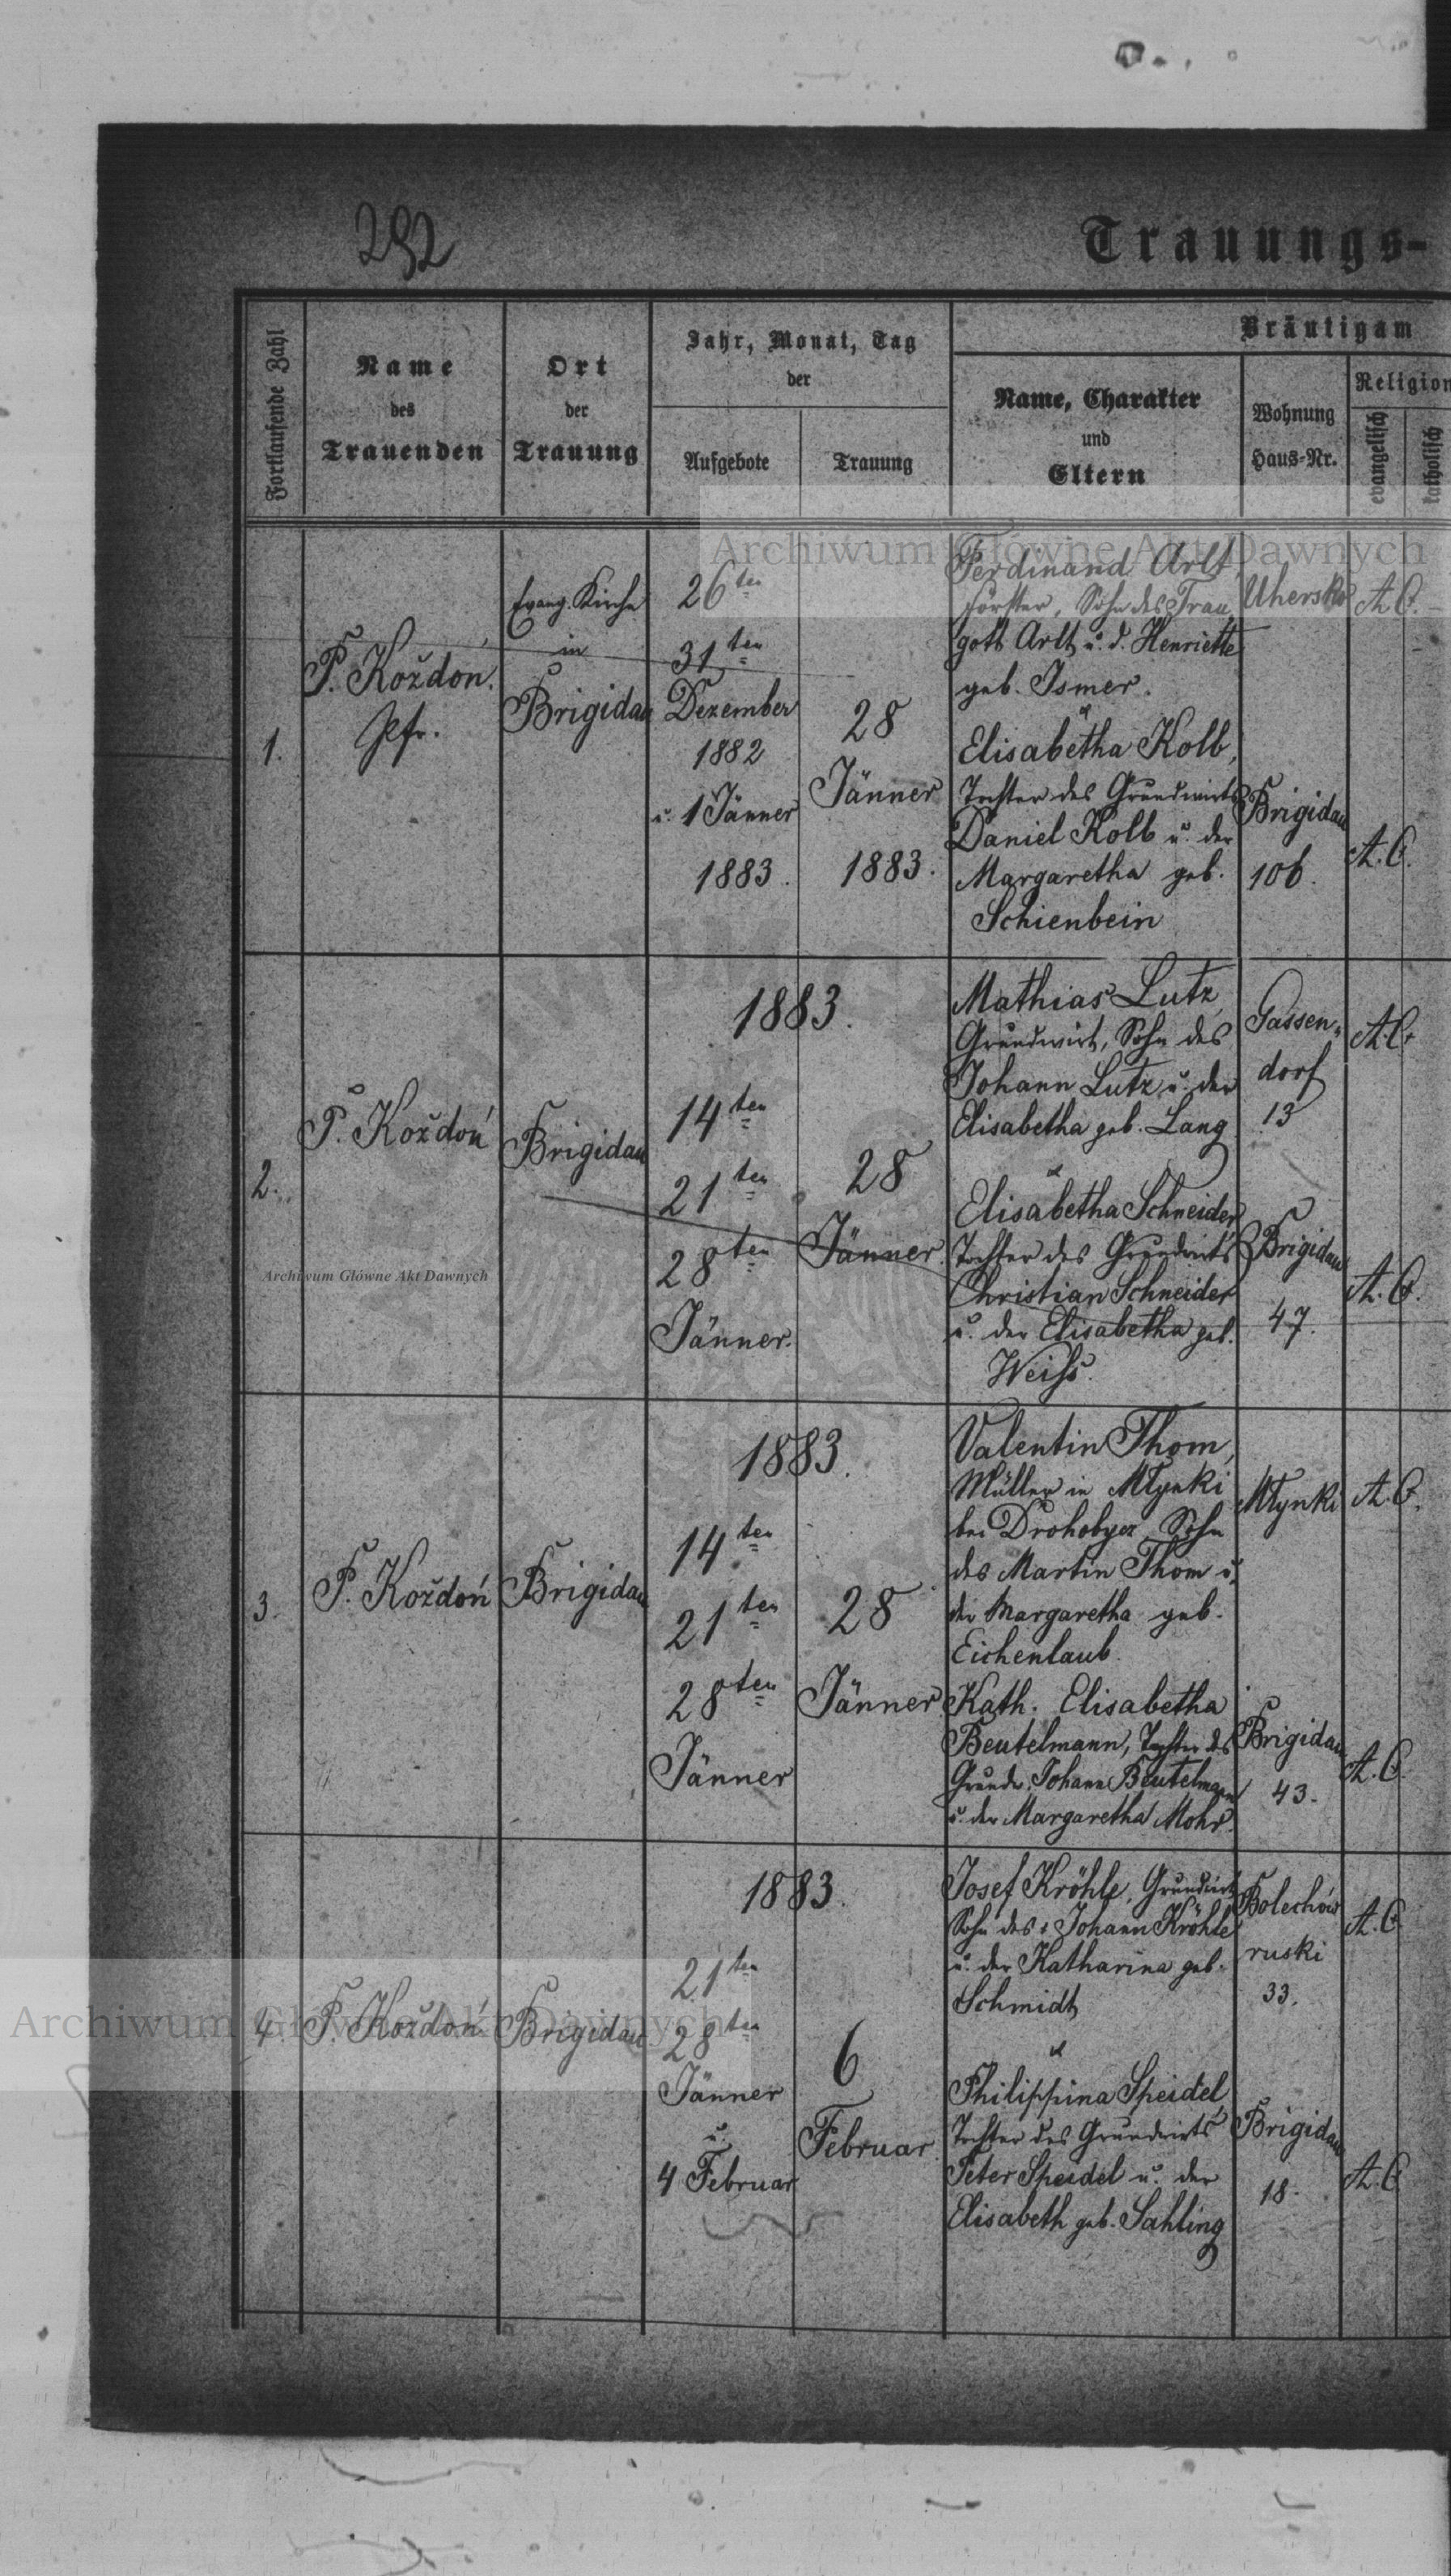 292
Trauungs-
Fortlaufende Zahl
Name
des
Trauenden
Ort
der
Trauung
Jahr, Monat, Tag
der
Aufgebote
Trauung
Bräutigam
Name, Charakter
und
Eltern
Wohnung
Haus-Nr.
Religion
evangelisch
katholisch
1.
P. Koždoń.
Pfr.
Evang. Kirche
in
Brigidau
26ten
31ten
Dezember
1882
u. 1 Jänner
1883.
28
Jänner
1883.
Ferdinand Arlt,
Förster, Sohn des Trau
gott Arlt u. d. Henriette
geb. Ismer.
Uhersko
A.C.
&
Elisabetha Kolb,
Tochter des Grundwirts
Daniel Kolb u. der
Margaretha geb.
Schienbein
Brigidau
106.
A.C.
2.
P. Koždoń
Brigidau
1883.
14ten
21ten
28ten
Jänner.
28
Jänner.
Mathias Lutz,
Grundwirt, Sohn des
Johann Lutz u. der
Elisabetha geb. Lang
Gassen„
dorf
13
A.C.
&
Elisabetha Schneider,
Tochter des Grundwirts
Christian Schneider
u. der Elisabetha geb.
Weiſs.
Brigidau
47.
A.C.
3.
P. Koždoń
Brigidau
1883.
14ten
21ten
28ten
Jänner
28
Jänner
Valentin Thom,
Müller in Młynki
bei Drohobycz, Sohn
des Martin Thom u.
der Margaretha geb.
Eichenlaub.
Młynki
A.C.
Kath. Elisabetha
Beutelmann, Tochter des
Grundw. Johann Beutelmann
u. der Margaretha Mohr.
Brigidau
43.
A.C.
4.
P. Koždoń
Brigidau
1883.
21ten
28ten
Jänner
u.
4 Februar
6
Februar.
Josef Kröhle, Grundwirt,
Sohn des Johann Kröhle
u. der Katharina geb.
Schmidt
Bolechów
ruski
33.
A.C.
&
Philippina Speidel,
Tochter des Grundwirts
Peter Speidel u. der
Elisabeth geb. Sahling
Brigidau
18.
A.C.
Archiwum Główne Akt Dawnych
Archiwum Główne Akt Dawnych
Archiwum Główne Akt Dawnych